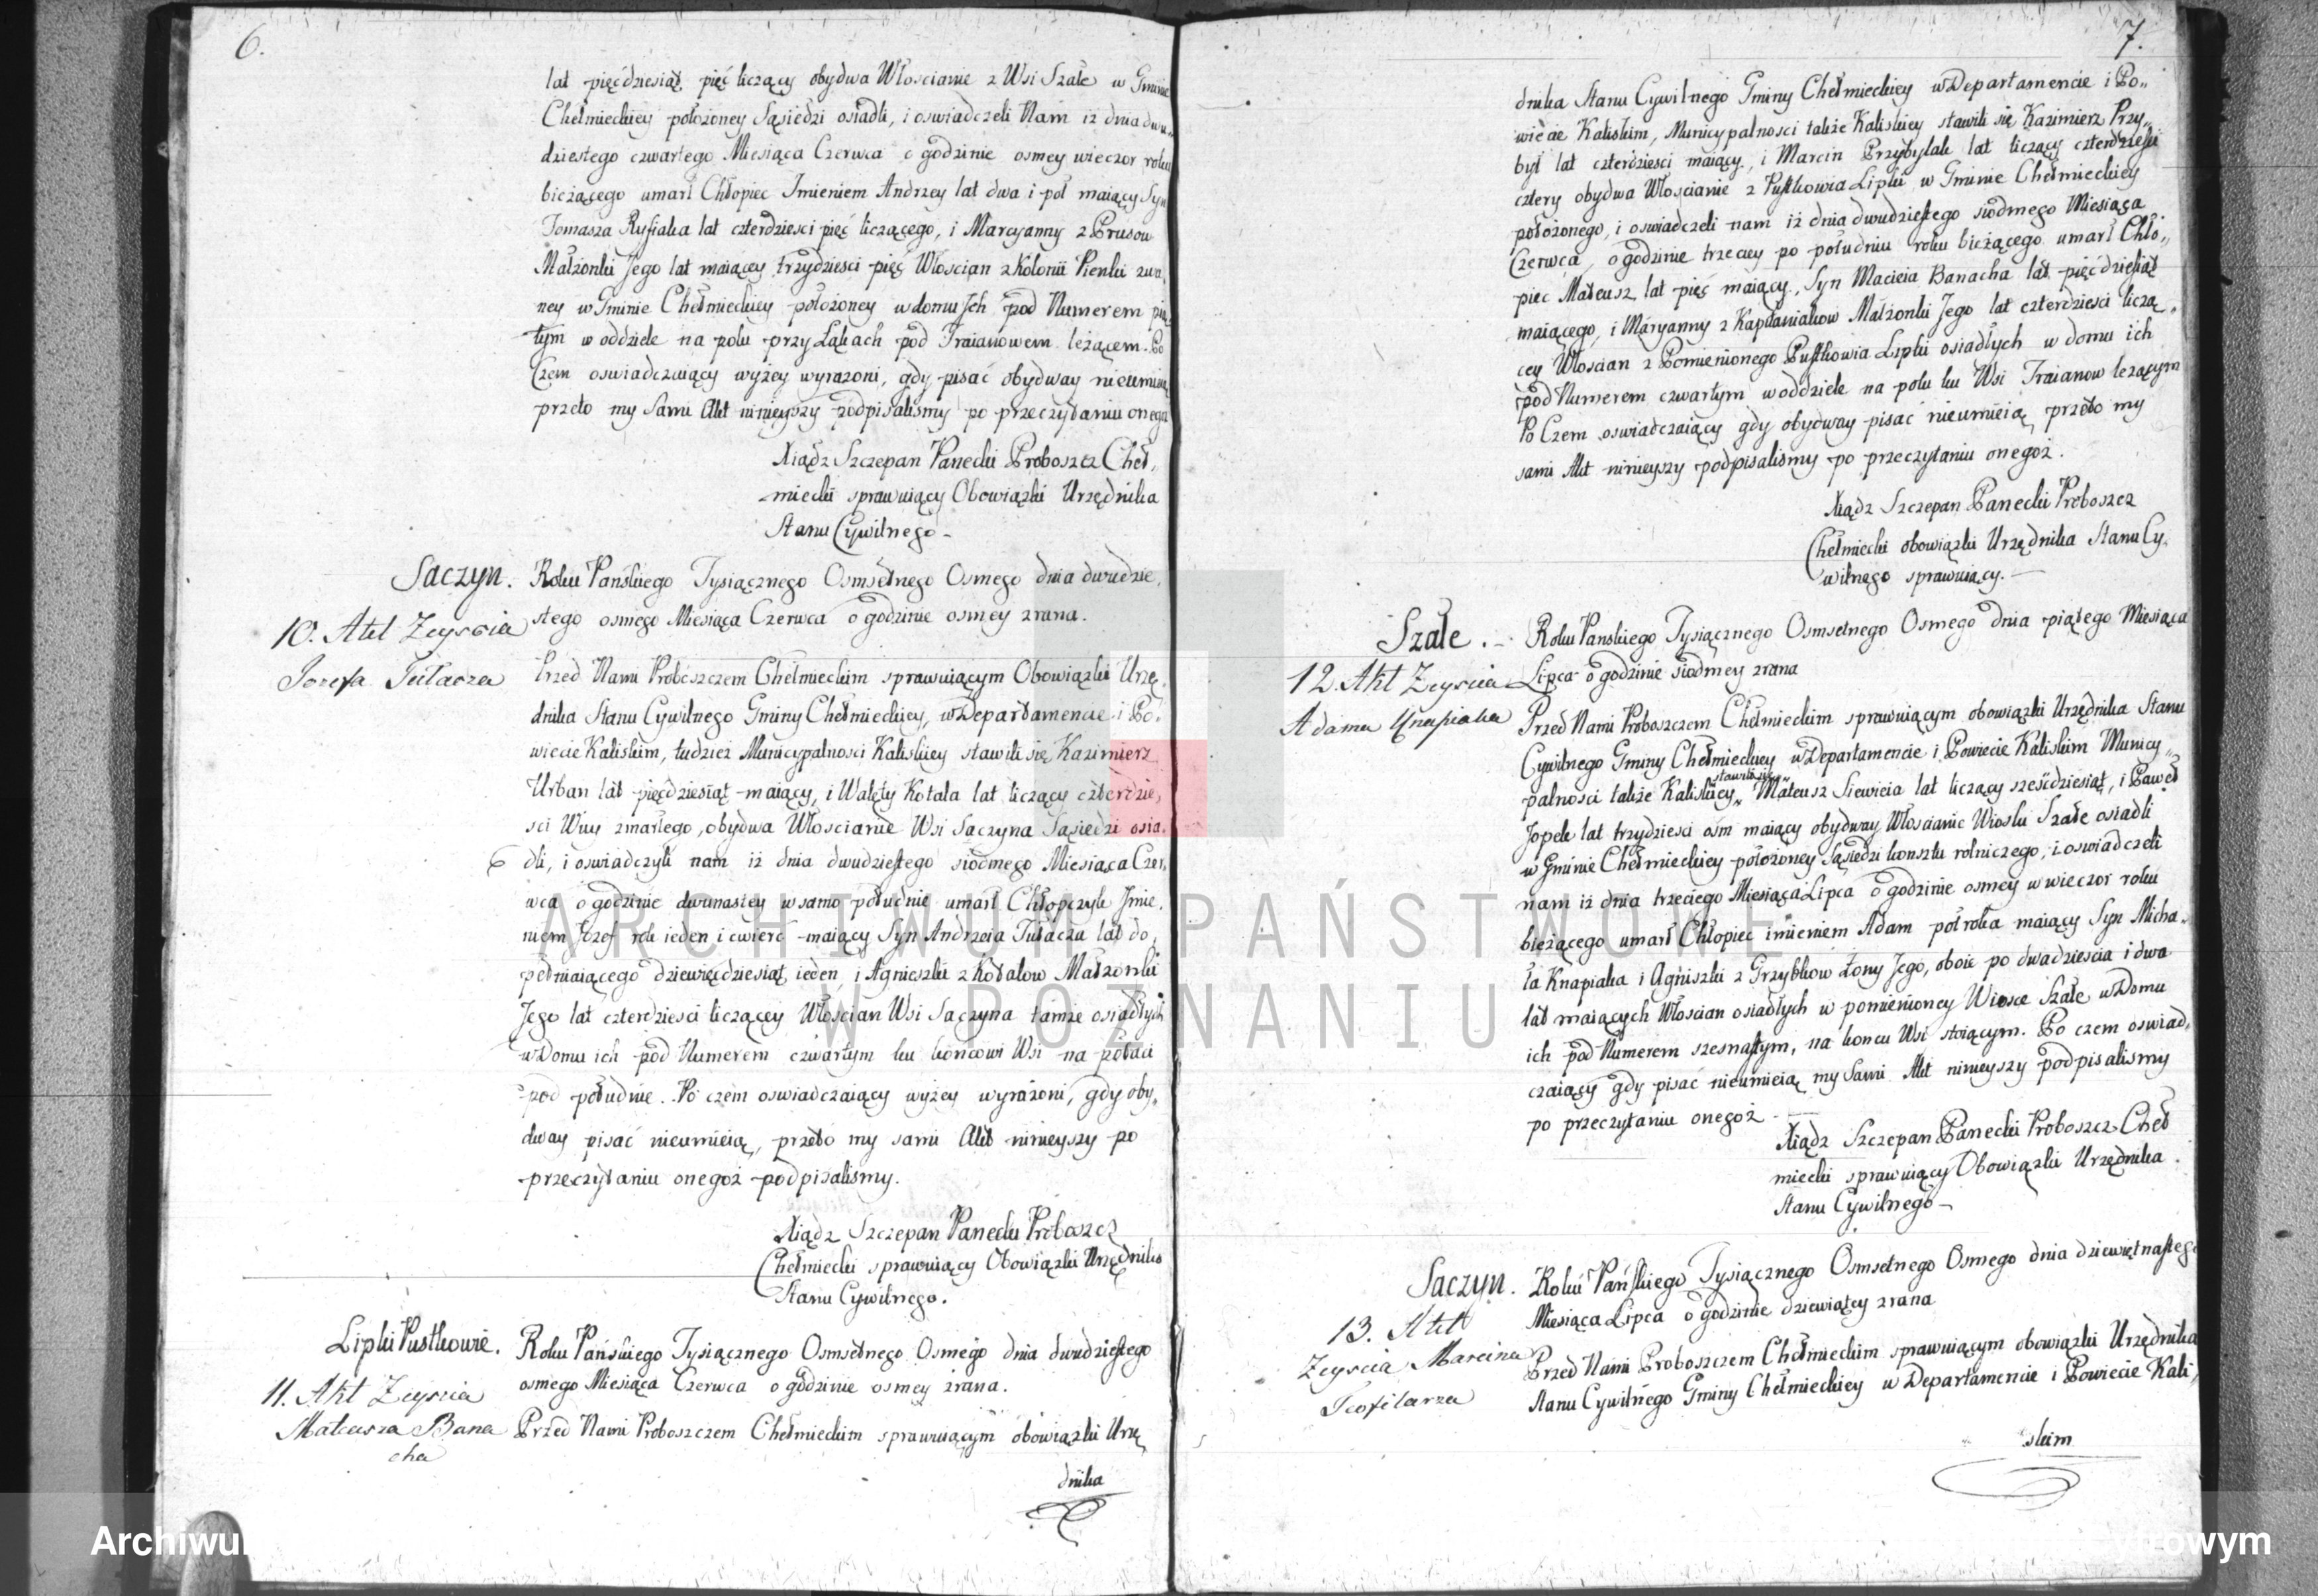 6.
lat pięćdziesiąt pięć liczący obydwa Włoscianie z Wsi Szałe w Gminie
Chełmieckiey położoney Sąsiedzi osiadli, i oswiadczeli Nam iż dnia dwu„
dziestego czwartego Miesiąca Czerwca o godzinie osmey wieczor roku
bieżącego umarł Chłopiec Jmieniem Andrzey lat dwa i puł maiący Syn
Tomasza Rysiaka lat czterdziesci pięć liczącego, i Maryanny z Prusow
Małżonki Jego lat maiącey trzydziesci pięć Włoscian z Kolonii Pienki zwa„
ney w Gminie Chełmieckiey położoney w domu Jch pod Numerem pią„
tym w oddziele na polu przy Łąkach pod Traianowem leżącem. Po
Czem oswiadczaiący wyżey wyrażoni, gdy pisać obydway nieumieią
przeto my Sami Akt ninieyszy podpisaliśmy po przeczytaniu onegoż
Xiądz Szczepan Panecki Proboszcz Cheł„
miecki sprawuiący Obowiązki Urzędnika
Stanu Cywilnego -
Saczyn.
10. Akt Zeyscia
Jozefa Tułacza
Roku Pańskiego Tysiącznego Osmsetnego Osmego dnia dwudzie„
stego osmego Miesiąca Czerwca o godzinie osmey zrana.
Przed Nami Proboszczem Chełmieckim sprawuiącym Obowiązki Urzę„
dnika Stanu Cywilnego Gminy Chełmieckiey, w Departamencie i Po„
wiecie Kaliskim, tudzież Municypalnosci Kaliskiey stawili się Kazimierz
Urban lat pięćdziesiąt maiący, i Walęty Kotala lat liczący czterdzie„
sci Wuy zmarłego, obydwa Włoscianie Wsi Saczyna Sąsiedzi osia„
dli, i oswiadczyli nam iż dnia dwudziestego siodmego Miesiąca Czer„
wca o godzinie dwunastey w samo południe umarł Chłopczyk Jmie„
niem Jozef rok ieden i cwierć maiący Syn Andrzeia Tułacza lat do„
pełniaiącego dziewięćdziesiąt ieden, i Agnieszki z Kotalow Małżonki
Jego lat czterdziesci liczącey Włoscian Wsi Saczyna tamże osiadłych
w Domu ich pod Numerem czwartym ku koncowi Wsi na połaci
pod południe. Po czem oswiadczaiący wyżey wyrażoni, gdy oby„
dway pisać nieumieią, przeto my sami Akt ninieyszy po
przeczytaniu onegoż podpisaliśmy.
Xiądz Szczepan Panecki Proboszcz
Chełmiecki sprawuiący Obowiązki Urzędnika
Stanu Cywilnego.
Lipki Pustkowie.
11. Akt Zeyscia
Mateusza Bana
cha
Roku Pańskiego Tysiącznego Osmsetnego Osmego dnia dwudziestego
osmego Miesiąca Czerwca o godzinie osmey zrana.
Przed Nami Proboszczem Chełmieckim sprawuiącym obowiązki Urzę
dnika
7.
dnika Stanu Cywilnego Gminy Chełmieckiey w Departamencie i Po„
wiecie Kaliskim, Municypalnosci także Kaliskiey stawili się Kazimierz Przy„
był lat czterdziesci maiący, i Marcin Przybylak lat liczący czterdziesci
cztery obydwa Włoscianie z Pustkowia Lipki w Gminie Chełmieckiey
położonego, i oswiadczeli nam iż dnia dwudziestego siodmego Miesiąca
Czerwca, o godzinie trzeciey po południu roku bieżącego umarł Chło„
piec Mateusz lat pięć maiący, Syn Macieia Banacha lat pięćdziesiąt
maiącego, i Maryanny z Kapitaniakow Małżonki Jego lat czterdziesci liczą„
cey Włoscian z Pomienionego Pustkowia Lipki osiadłych w domu ich
pod Numerem czwartym w oddziele na polu ku Wsi Traianow leżącym
Po Czem oswiadczaiący gdy obydway pisać nieumieią przeto my
sami Akt ninieyszy podpisaliśmy po przeczytaniu onegoż.
Xiądz Szczepan Panecki Proboszcz
Chełmiecki obowiązki Urzędnika Stanu Cy„
wilnego sprawuiący.
Szałe.
12. Akt Zeyscia
Adama Knapiaka
Roku Panskiego Tysiącznego Osmsetnego Osmego dnia piątego Miesiąca
Lipca o godzinie siodmey zrana
Przed Nami Proboszczem Chełmieckim sprawuiącym obowiązki Urzędnika Stanu
Cywilnego Gminy Chełmieckiey w Departamencie i Powiecie Kaliskim Municy„
palnosci także Kaliskiey stawili się Mateusz Siewieia lat liczący sześćdziesiąt, i Paweł
Jopek lat trzydziesci osm maiący obydway Włoscianie Wioski Szałe osiadli
w Gminie Chełmieckiey położoney Sąsiedzi konsztu rolniczego, i oswiadczeli
nam iż dnia trzeciego Miesiąca Lipca o godzinie osmey w wieczor roku
bieżącego umarł Chłopiec imieniem Adam pół roka maiący Syn Micha„
ła Knapiaka i Agniszki z Grzybkow Żony Jego, oboie po dwadziescia i dwa
lat maiących Włoscian osiadłych w pomienioney Wiosce Szałe w Domu
ich pod Numerem szesnastym, na koncu Wsi stoiącym. Po czem oswiad„
czaiący gdy pisać nieumieią my Sami Akt ninieyszy podpisaliśmy
po przeczytaniu onegoż
Xiądz Szczepan Panecki Proboszcz Cheł
miecki sprawuiący Obowiązki Urzędnika
Stanu Cywilnego -
Saczyn.
13. Akt
Zeyscia Marcina
Teofilarza
Roku Pańskiego Tysiącznego Osmsetnego Osmego dnia dziewiętnastego
Miesiąca Lipca o godzinie dziewiątey zrana
Przed Nami Proboszczem Chełmieckim sprawuiącym obowiązki Urzędnika
Stanu Cywilnego Gminy Chełmieckiey w Departamencie i Powiecie Kali„
skim
ARCHIWUM PAŃSTWOWE
W POZNANIU